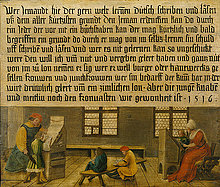 Wer jemandt hie der gern welt lernen Dütsch schriben und läsen
us dem aller kürtzisten grundt den jeman erdencken kan do durch
ein jeder der vor nit ein büchstaben kan der mag kürtzlich und bald
begriffen ein grundt do durch er mag von jm selbs lernen sin schuld
uff schribē und läsen und wer es nit gelernen kan so ungeschickt
were den will jch um nüt und vergeben gelert haben und gantz nüt
von jm zů lon nemen er syg wer er well burger oder hantwercks ge
sellen frouwen und junckfrouwen wer sin bedarff der kum har jn der
wirt drüwlich gelert um ein zimlichen lon · Aber die junge knabē
und meitlin noch den fronvasten wie gewonheit ist · 1516 ·